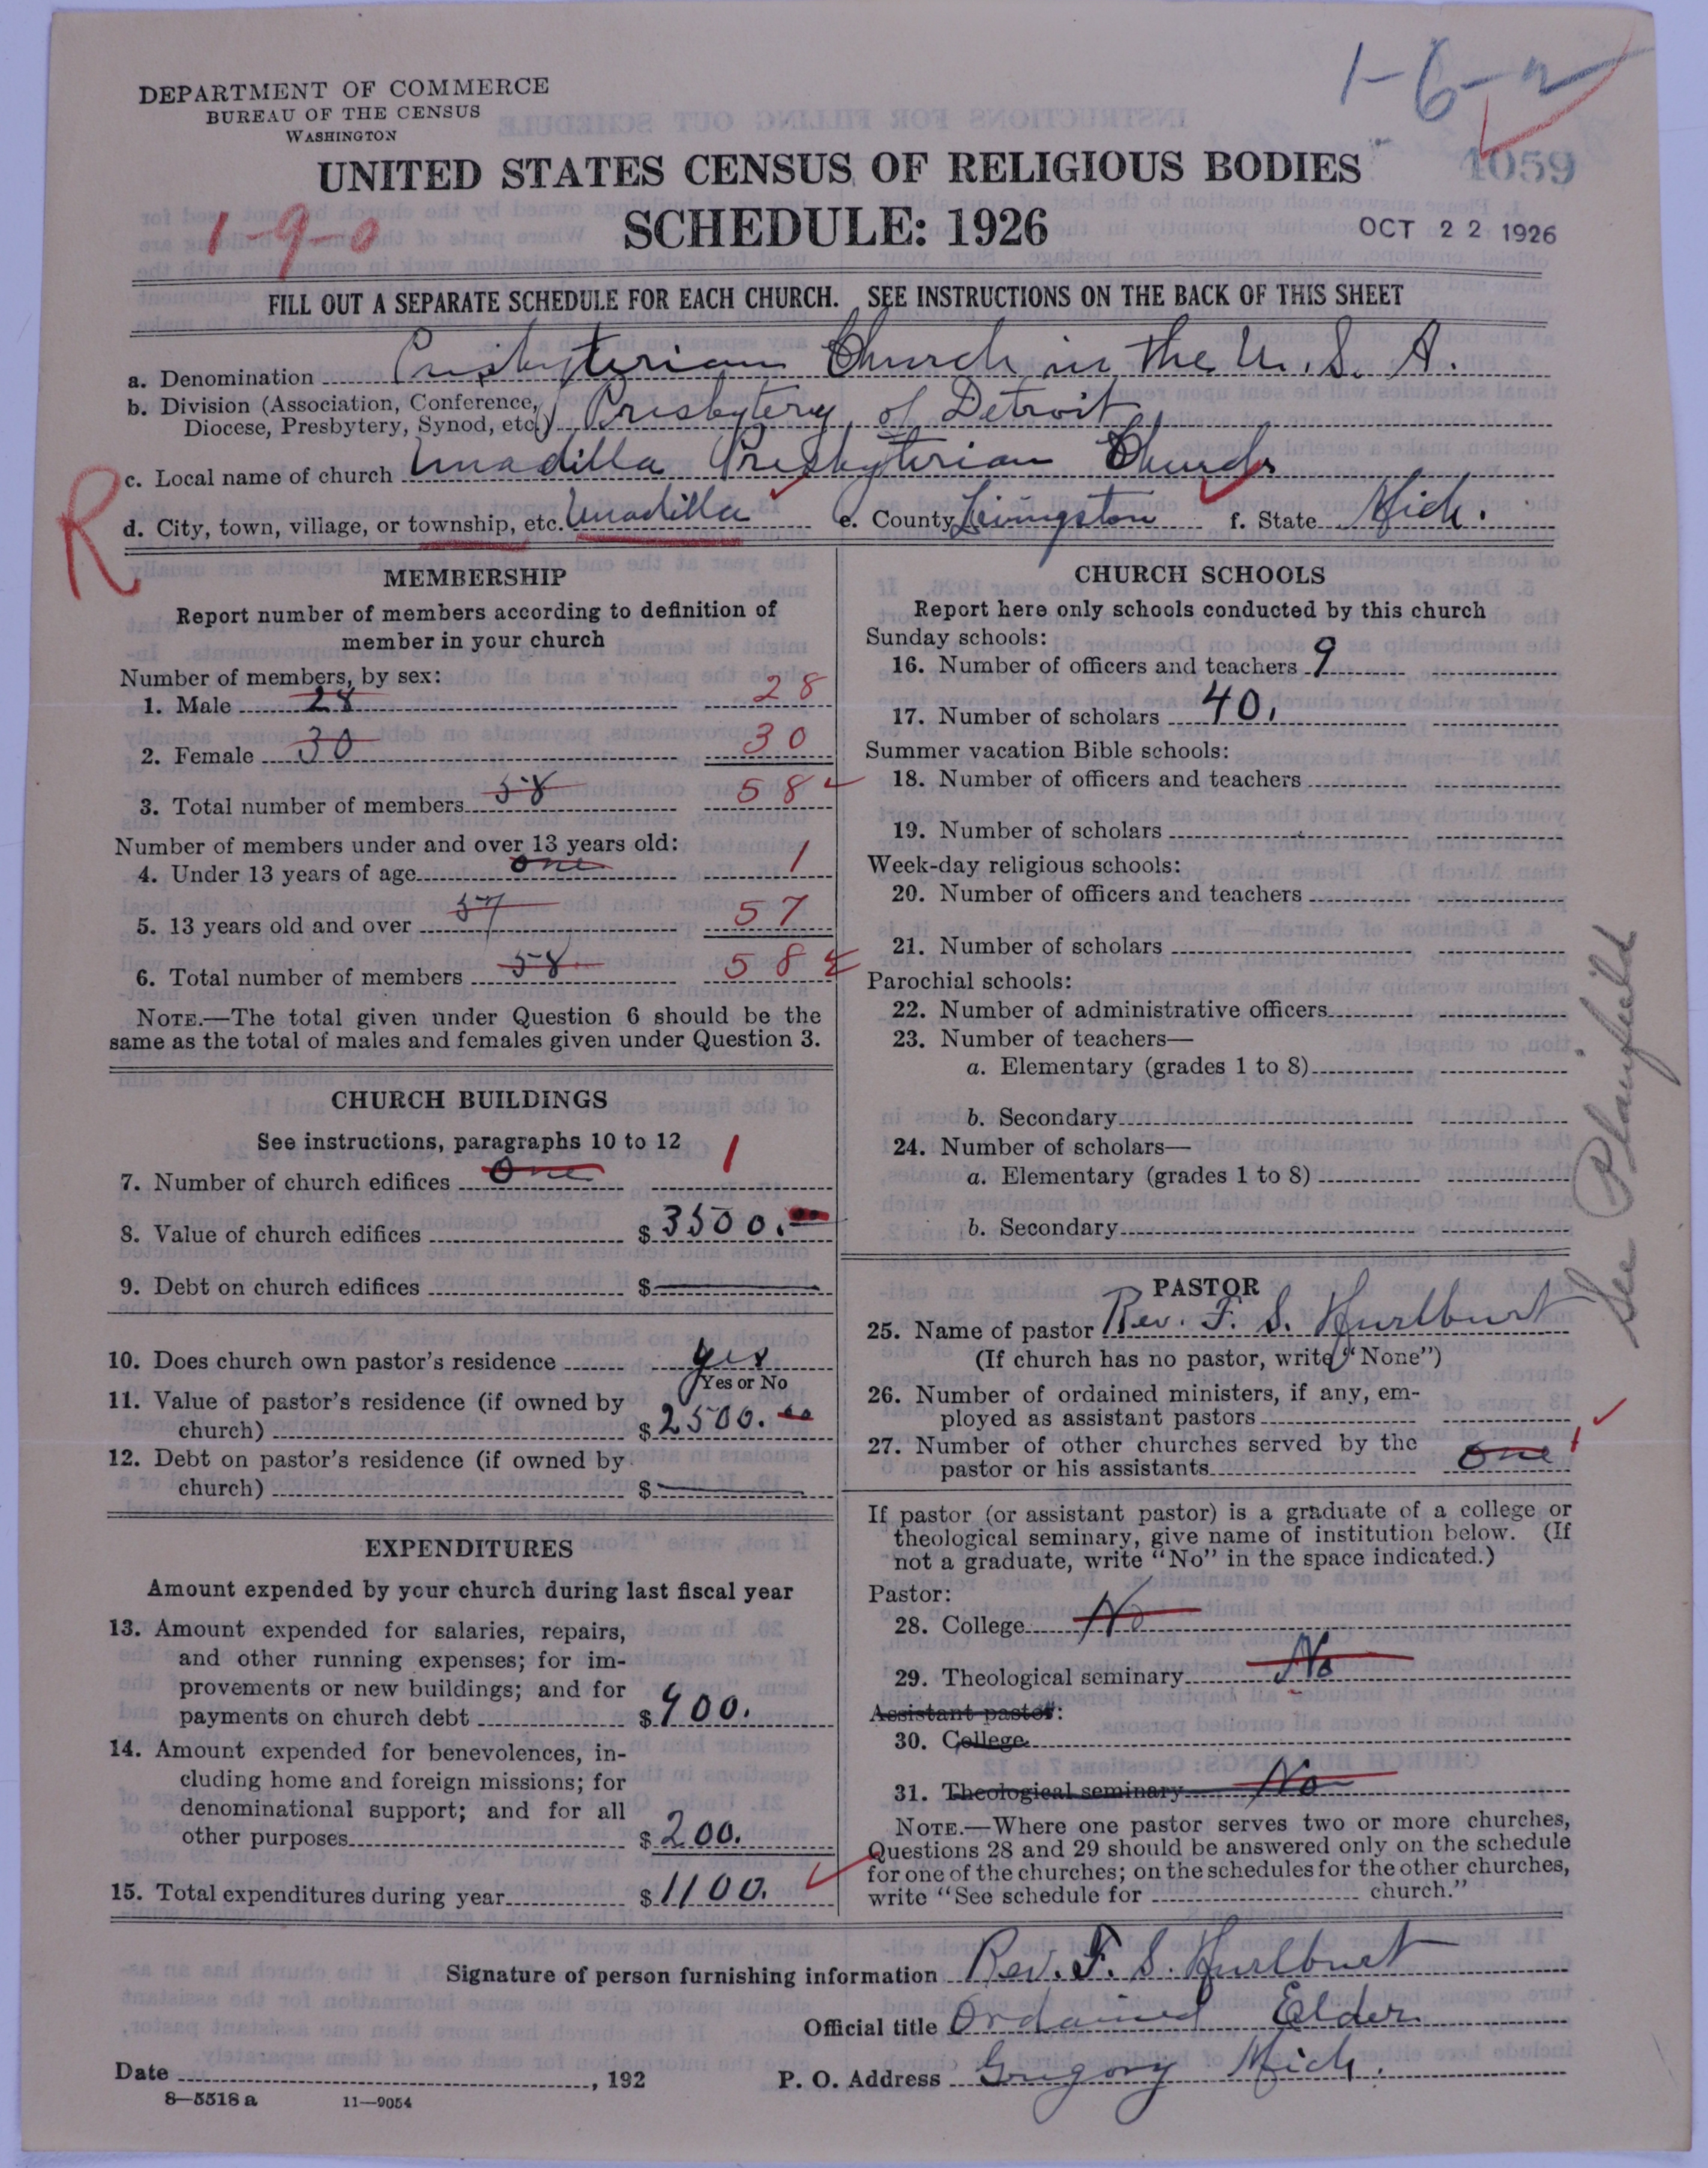 1-6-2
DEPARTMENT OF COMMERCE
BUREAU OF THE CENSUS
WASHINGTON
4059
UNITED STATES CENSUS OF RELIGIOUS BODIES
1-9-0
SCHEDULE: 1926
OCT 22 1926
FILL OUT A SEPARATE SCHEDULE FOR EACH CHURCH. SEE INSTRUCTIONS ON THE BACK OF THIS SHEET
a. Denomination Presbyterian Church in the U. S. A.
b. Division (Association, Conference,
Diocese, Presbytery, Synod, etc.) Presbytery of Detroit
c. Local name of church Unadilla Presbyterian Church
R
d. City, town, village, or township, etc. Unadilla e. County Livingston f. State Mich.
MEMBERSHIP
Report number of members according to definition of
member in your church
Number of members, by sex:
1. Male 28 28
2. Female 30 30
3. Total number of members 58 58
Number of members under and over 13 years old:
4. Under 13 years of age one 1
5. 13 years old and over 57 57
6. Total number of members 58 58
NOTE.—The total given under Question 6 should be the
same as the total of males and females given under Question 3.
CHURCH BUILDINGS
See instructions, paragraphs 10 to 12
7. Number of church edifices One 1
8. Value of church edifices $3500.
9. Debt on church edifices $
10. Does church own pastor's residence yes
Yes or No
11. Value of pastor's residence (if owned by
church) $2500.
12. Debt on pastor's residence (if owned by
church) $
EXPENDITURES
Amount expended by your church during last fiscal year
13. Amount expended for salaries, repairs,
and other running expenses; for im-
provements or new buildings; and for
payments on church debt $900.
14. Amount expended for benevolences, in-
cluding home and foreign missions; for
denominational support; and for all
other purposes $200.
15. Total expenditures during year $1100.
CHURCH SCHOOLS
Report here only schools conducted by this church
Sunday schools:
16. Number of officers and teachers 9
17. Number of scholars 40.
Summer vacation Bible schools:
18. Number of officers and teachers
19. Number of scholars
Week-day religious schools:
20. Number of officers and teachers
21. Number of scholars
Parochial schools:
22. Number of administrative officers
23. Number of teachers—
a. Elementary (grades 1 to 8)
b. Secondary
24. Number of scholars—
a. Elementary (grades 1 to 8)
b. Secondary
See Plainfield
PASTOR
25. Name of pastor Rev. F. S. Hurlburt
(If church has no pastor, write "None")
26. Number of ordained ministers, if any, em-
ployed as assistant pastors
27. Number of other churches served by the
pastor or his assistants one 1
If pastor (or assistant pastor) is a graduate of a college or
theological seminary, give name of institution below. (If
not a graduate, write "No" in the space indicated.)
Pastor:
28. College No
29. Theological seminary No
Assistant pastor:
30. College
31. Theological seminary No
NOTE.—Where one pastor serves two or more churches,
Questions 28 and 29 should be answered only on the schedule
for one of the churches; on the schedules for the other churches,
write "See schedule for church."
Signature of person furnishing information Rev. F. S. Hurlburt
Official title Ordained Elder
Date , 192 P. O. Address Gregory Mich.
8—5518 a 11—9054